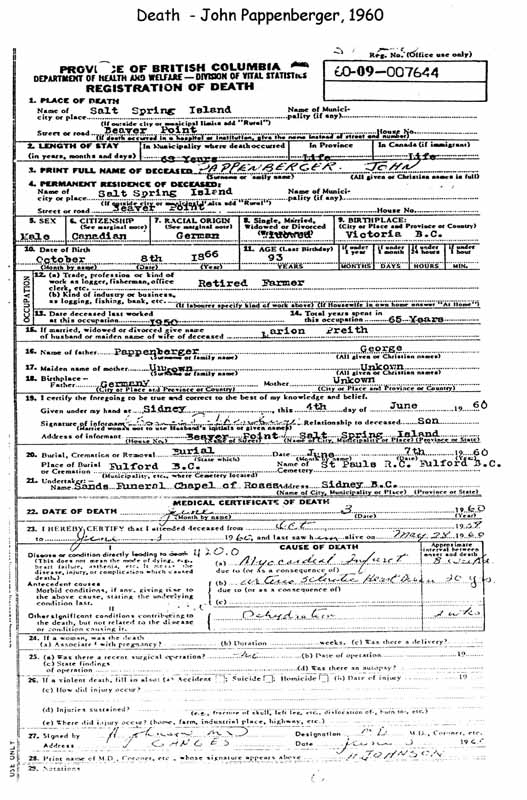 Death - John Pappenberger, 1960
Reg. No. (Office use only)
PROVINCE OF BRITISH COLUMBIA
60-09-007644
DEPARTMENT OF HEALTH AND WELFARE — DIVISION OF VITAL STATISTICS
REGISTRATION OF DEATH
1. PLACE OF DEATH
Name of city or place Salt Spring Island Name of Municipality (if any)
(If outside city or municipal limits add "Rural")
Street or road Beaver Point House No.
(If death occurred in a hospital or institution, give the name instead of street and number)
2. LENGTH OF STAY (in years, months and days) In Municipality where death occurred 63 Years In Province Life In Canada (if immigrant) Life
3. PRINT FULL NAME OF DECEASED PAPPENBERGER. JOHN
(Surname or family name) (All given or Christian names in full)
4. PERMANENT RESIDENCE OF DECEASED:
Name of city or place Salt Spring Islend Name of Municipality (if any)
(If outside city or municipal limits add "Rural")
Street or road Beaver Point House No.
5. SEX 6. CITIZENSHIP (See marginal note) 7. RACIAL ORIGIN (See marginal note) 8. Single, Married, Widowed or Divorced 9. BIRTHPLACE: (City or Place and Province or Country)
Male Canadian German Widowed Victoria B.C.
10. Date of Birth 11. AGE (Last Birthday) If under 1 year If under 1 month If under 24 hours If under 1 hour
October 8th 1866 93
(Month by name) (Date) (Year) YEARS MONTHS DAYS HOURS MIN.
OCCUPATION
12. (a) Trade, profession or kind of work as logger, fisherman, office clerk, etc. Retired Farmer
(b) Kind of industry or business, as logging, fishing, bank, etc.
(If labourer specify kind of work above) (If Housewife in own home answer "At Home")
13. Date deceased last worked at this occupation 1950 14. Total years spent in this occupation 65 Years
15. If married, widowed or divorced give name of husband or maiden name of wife of deceased Larion Preith
16. Name of father Pappenberger George
(Surname or family name) (All given or Christian names)
17. Maiden name of mother Unkown Unkown
(Surname or family name) (All given or Christian names)
18. Birthplace— Father Germany Mother Unkown
(City or Place and Province or Country) (City or Place and Province or Country)
19. I certify the foregoing to be true and correct to the best of my knowledge and belief.
Given under my hand at Sidney, this 4th day of June 1960
Signature of informant Relationship to deceased Son
(Married women not to use Husband's initials or given names)
Address of informant Beaver Point Salt Spring Island
(House No.) (Name of Street) (Name of City, Municipality or Place) (Province or State)
20. Burial, Cremation or Removal Burial Date June 7th 1960
(State which)
Place of Burial or Cremation Fulford B.C. Name of Cemetery St Pauls R.C. Fulford B.C.
(Municipality, etc., where Cemetery located)
21. Undertaker: Name Sands Funeral Chapel of Roses Address Sidney B.C.
(Name of City, Municipality or Place) (Province or State)
MEDICAL CERTIFICATE OF DEATH
22. DATE OF DEATH June 3 1960
(Month by name) (Date) (Year)
23. I HEREBY CERTIFY that I attended deceased from Oct 1958
to June 3 1960, and last saw him alive on May 28 1960
I 420.0 CAUSE OF DEATH Approximate interval between onset and death
Disease or condition directly leading to death
(This does not mean the mode of dying, e.g., heart failure, asthenia, etc. It means the disease, injury, or complication which caused death.)
(a) Myocardial Infarct
due to (or as a consequence of)
Antecedent causes
Morbid conditions, if any, giving rise to the above cause, stating the underlying condition last.
(b) arterio Sclerotic Heart Disease 20 yrs.
due to (or as a consequence of)
(c)
II
Other significant conditions contributing to the death, but not related to the disease or condition causing it.
Dehydration
24. If a woman, was the death (a) Associated with pregnancy? (b) Duration weeks, (c) Was there a delivery?
25. (a) Was there a recent surgical operation? no (b) Date of operation 19
(c) State findings of operation (d) Was there an autopsy?
26. If a violent death, fill in also: (a) Accident; Suicide; Homicide (b) Date of injury 19
(c) How did injury occur?
(d) Injuries sustained?
(e.g., fracture of skull, left leg, etc., dislocation of, burn to, etc.)
(e) Where did injury occur? (home, farm, industrial place, highway, etc.)
27. Signed by A Johnson MD Designation MD M.D., Coroner, etc.
Address GANGES Date June 3 1960
28. Print name of M.D., Coroner, etc., whose signature appears above A JOHNSON
29. Notations
USE ONLY